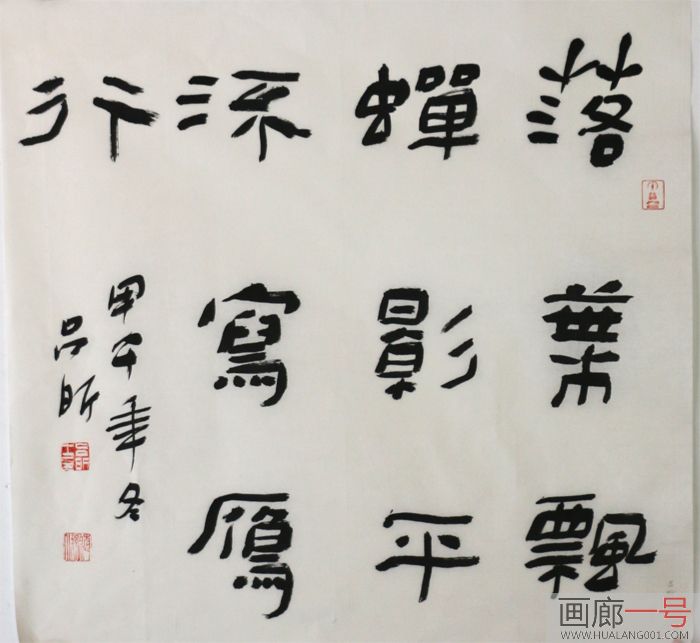 落葉飄
蟬影平
流寫鴈
行
甲午年冬
吕昕
画廊一号
WWW.HUALANG001.COM